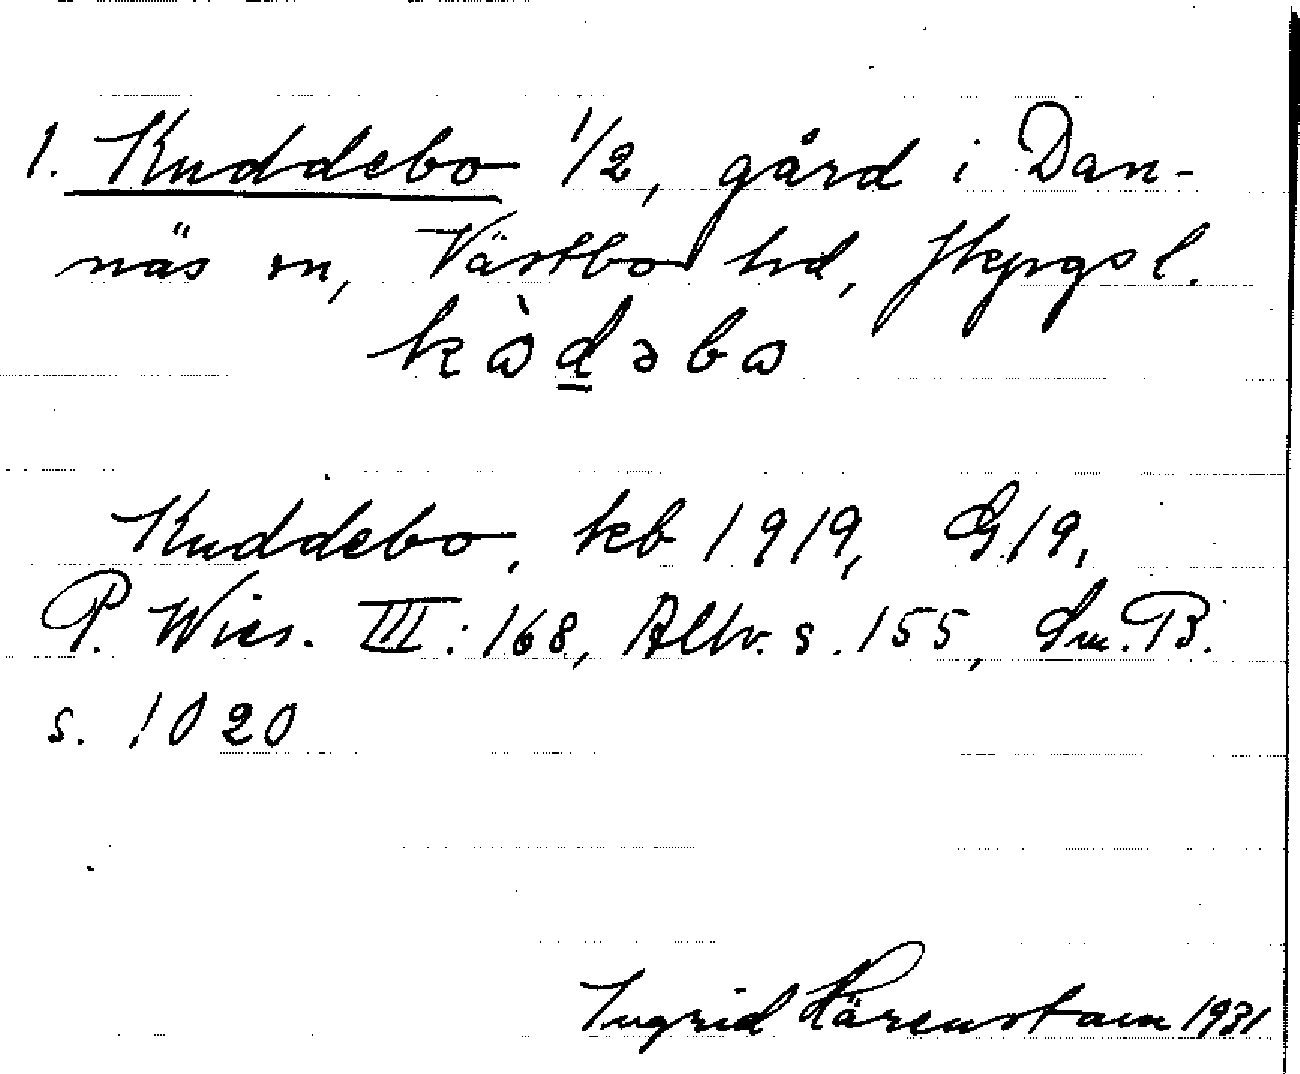 1. Kuddebo 1/2, gård i Dan-
näs sn, Västbo hd, Jkpgs l.
kòdəbo
Kuddebo, kb 1919, G. 19,
P. Wies. III: 168, Allv. s. 155, Sm. B.
s. 1020
Ingrid Härenstam 1931